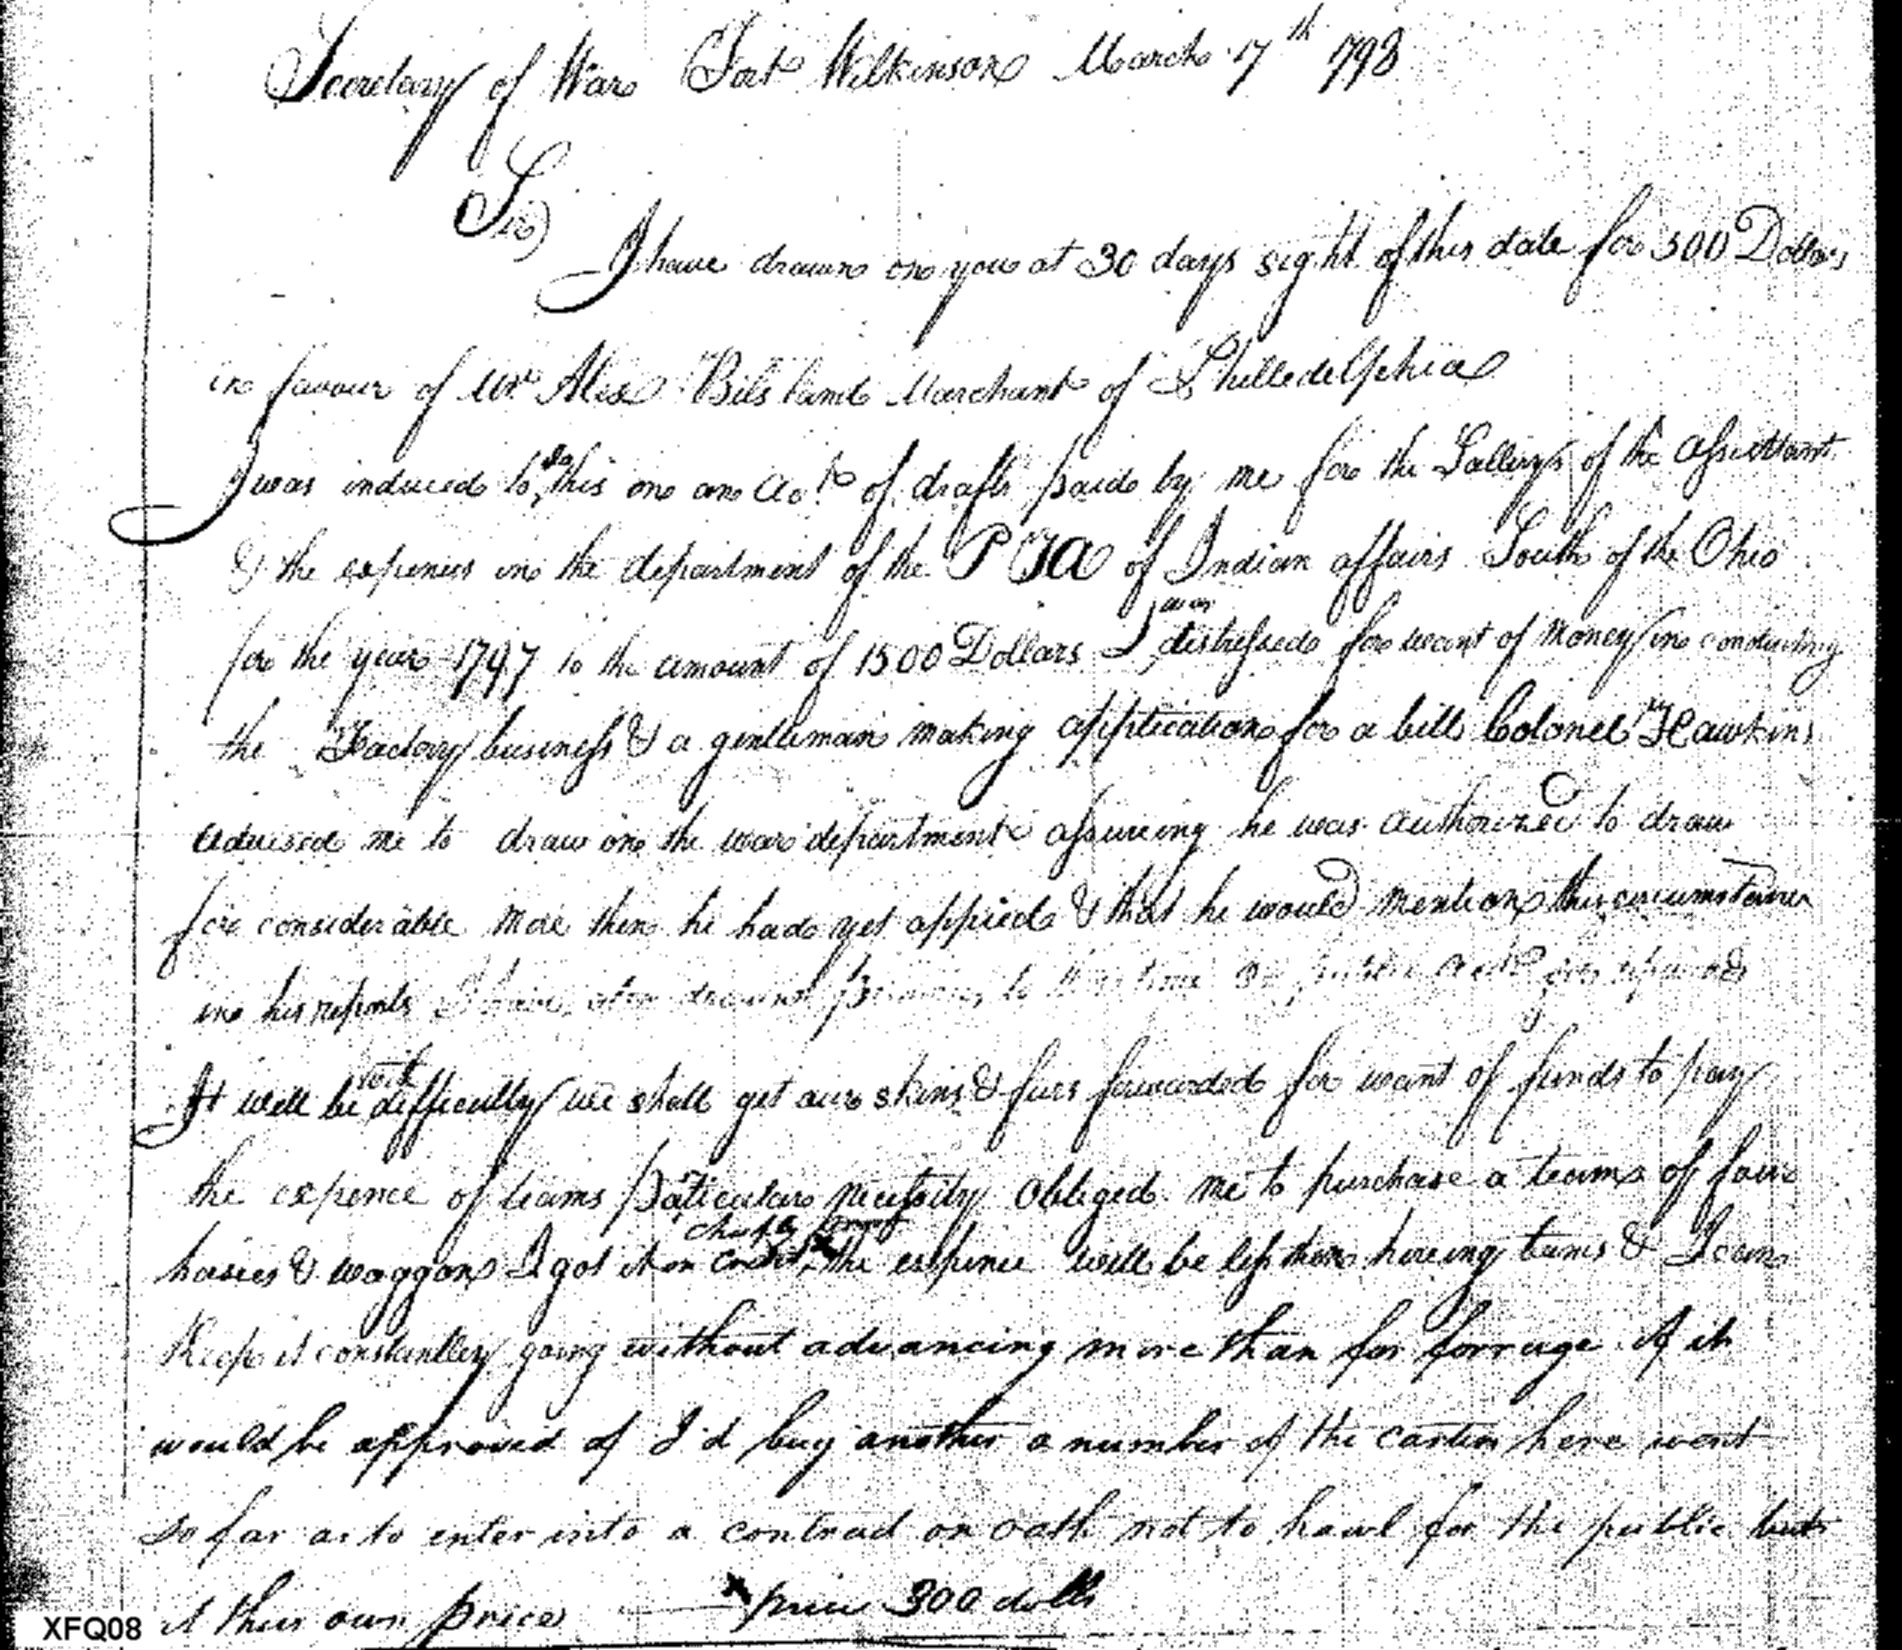 Secretary of War Fort Wilkinson March 17th 798
Sir)
I have drawn on you at 30 days sight of this date for 500 Dollars
in favour of Mr. Alex Bilsland Marchant of Philledelphia
I was induced to do this on an acct. of drafts paid by me for the Sallerys of the assisttant
& the expences in the department of the P T A of Indian affairs South of the Ohio
for the year 1797 to the amount of 1500 Dollars I was distressed for want of Money in conducting
the Factory business & a gentleman making application for a bill Colonel Hawkins
advised me to draw on the war department assureing he was authorized to draw
for considerable more then he had yet applied & that he would mention this circumstance
in his reports I have also drawn to
It will be with difficulty we shall get our skins & furs forwarded for want of funds to pay
the expence of teams paticular necessity obliged me to purchase a team of four
horses & waggon I got it on credit the expence will be less then hireing teams & I can
Keep it constantley going without advancing more than for forrage if it
would be approved of I'd buy another a number of the here went
so far as to enter into a contract on oath not to hawl for the public but
at their own price price 300 dolls
XFQ08